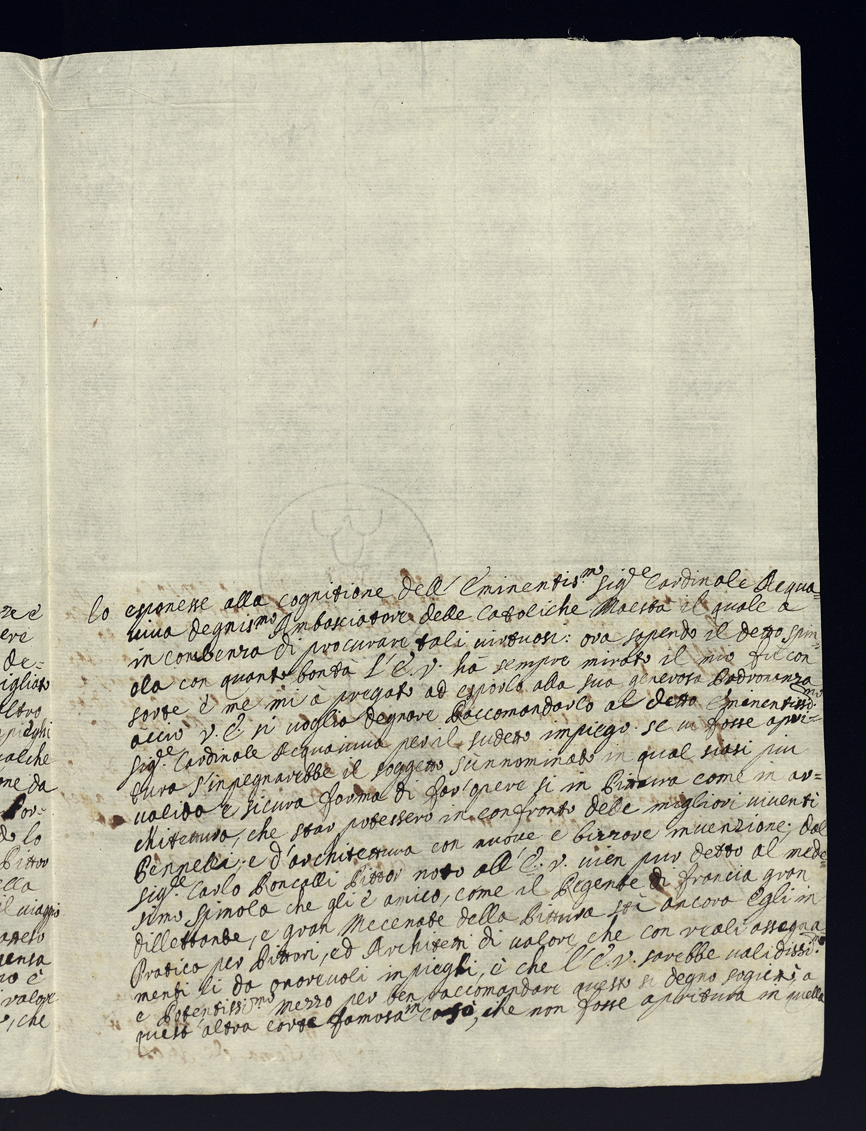 lo esponesse alla cognitione dell'Eminentis.mo Sig.e Cardinale Acqua=
viva degnis.mo Ambasciatore delle Catoliche Maestà il quale a
in conbenza di procurare tali virtuosi: ora sapendo il detto Spin=
ola con quanta bontà l'E. V. ha sempre mirato il mio fie con
sorte è me mi a pregato ad esporlo alla sua generosa Padronanza
acciò V. E. si voglia degnare Raccomandarlo al detto Eminentissi.mo
Sig.e Cardinale Acquaviva per il sudetto impiego. se vi fosse apri=
tura s'inpegnarebbe il soggetto sunnominato in qual siasi piu
valida e sicura forma di far opere si in Pittura come in ar=
chitettura, che star potessero in confronto delle migliori viventi
Pennelli; e d'architettura con nuove e bizzore invenzione; dal
Sig.e Carlo Roncalli Pittor noto all'E. V. vien pur detto al mede=
simo Spinola che gli è amico, come il Regente di francia gran
dillettante, e gran Mecenate della Pittura sta ancora Egli in
Pratica per Pittori, ed Architetti di valore, che con reali assegna=
menti li da onorevoli impieghi, è che l'E. V. sarebbe validissi.mo
e Potentissimo mezzo per ben raccomandare questo si degno sogietto a
quest'altra corte famosa in caso, che non fosse apritura in quella
ze è
ere
de=
igliato
altro
ualche
ne da
do lo
Pittor
ella
il viaggio
no è
valore
, che